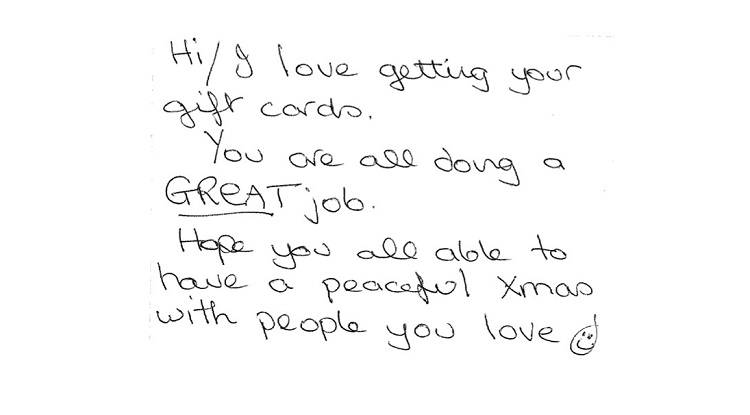 Hi/I love getting your
gift cards.
You are all doing a
GREAT job.
Hope you all able to
have a peaceful Xmas
with people you love